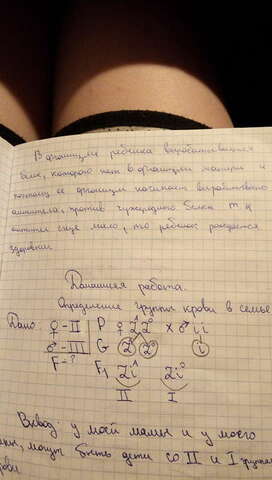 В организме ребёнка вырабатывается
белок, которого нет в организме матери и
поэтому её организм начинает вырабатывать
антитела, против чужеродного белка т.к
антител еще мало, то ребенок рождается
здоровым.
Домашняя работа.
Определение группы крови в семье
Дано: ♀-II P ♀ I^A I^0 x ♂ ii
♂-III G I^A I^0 i
F-? F₁ Ii^A Ii^0
II I
Вывод: у моей мамы и у моего
папы, могут быть дети со II и I группами
крови